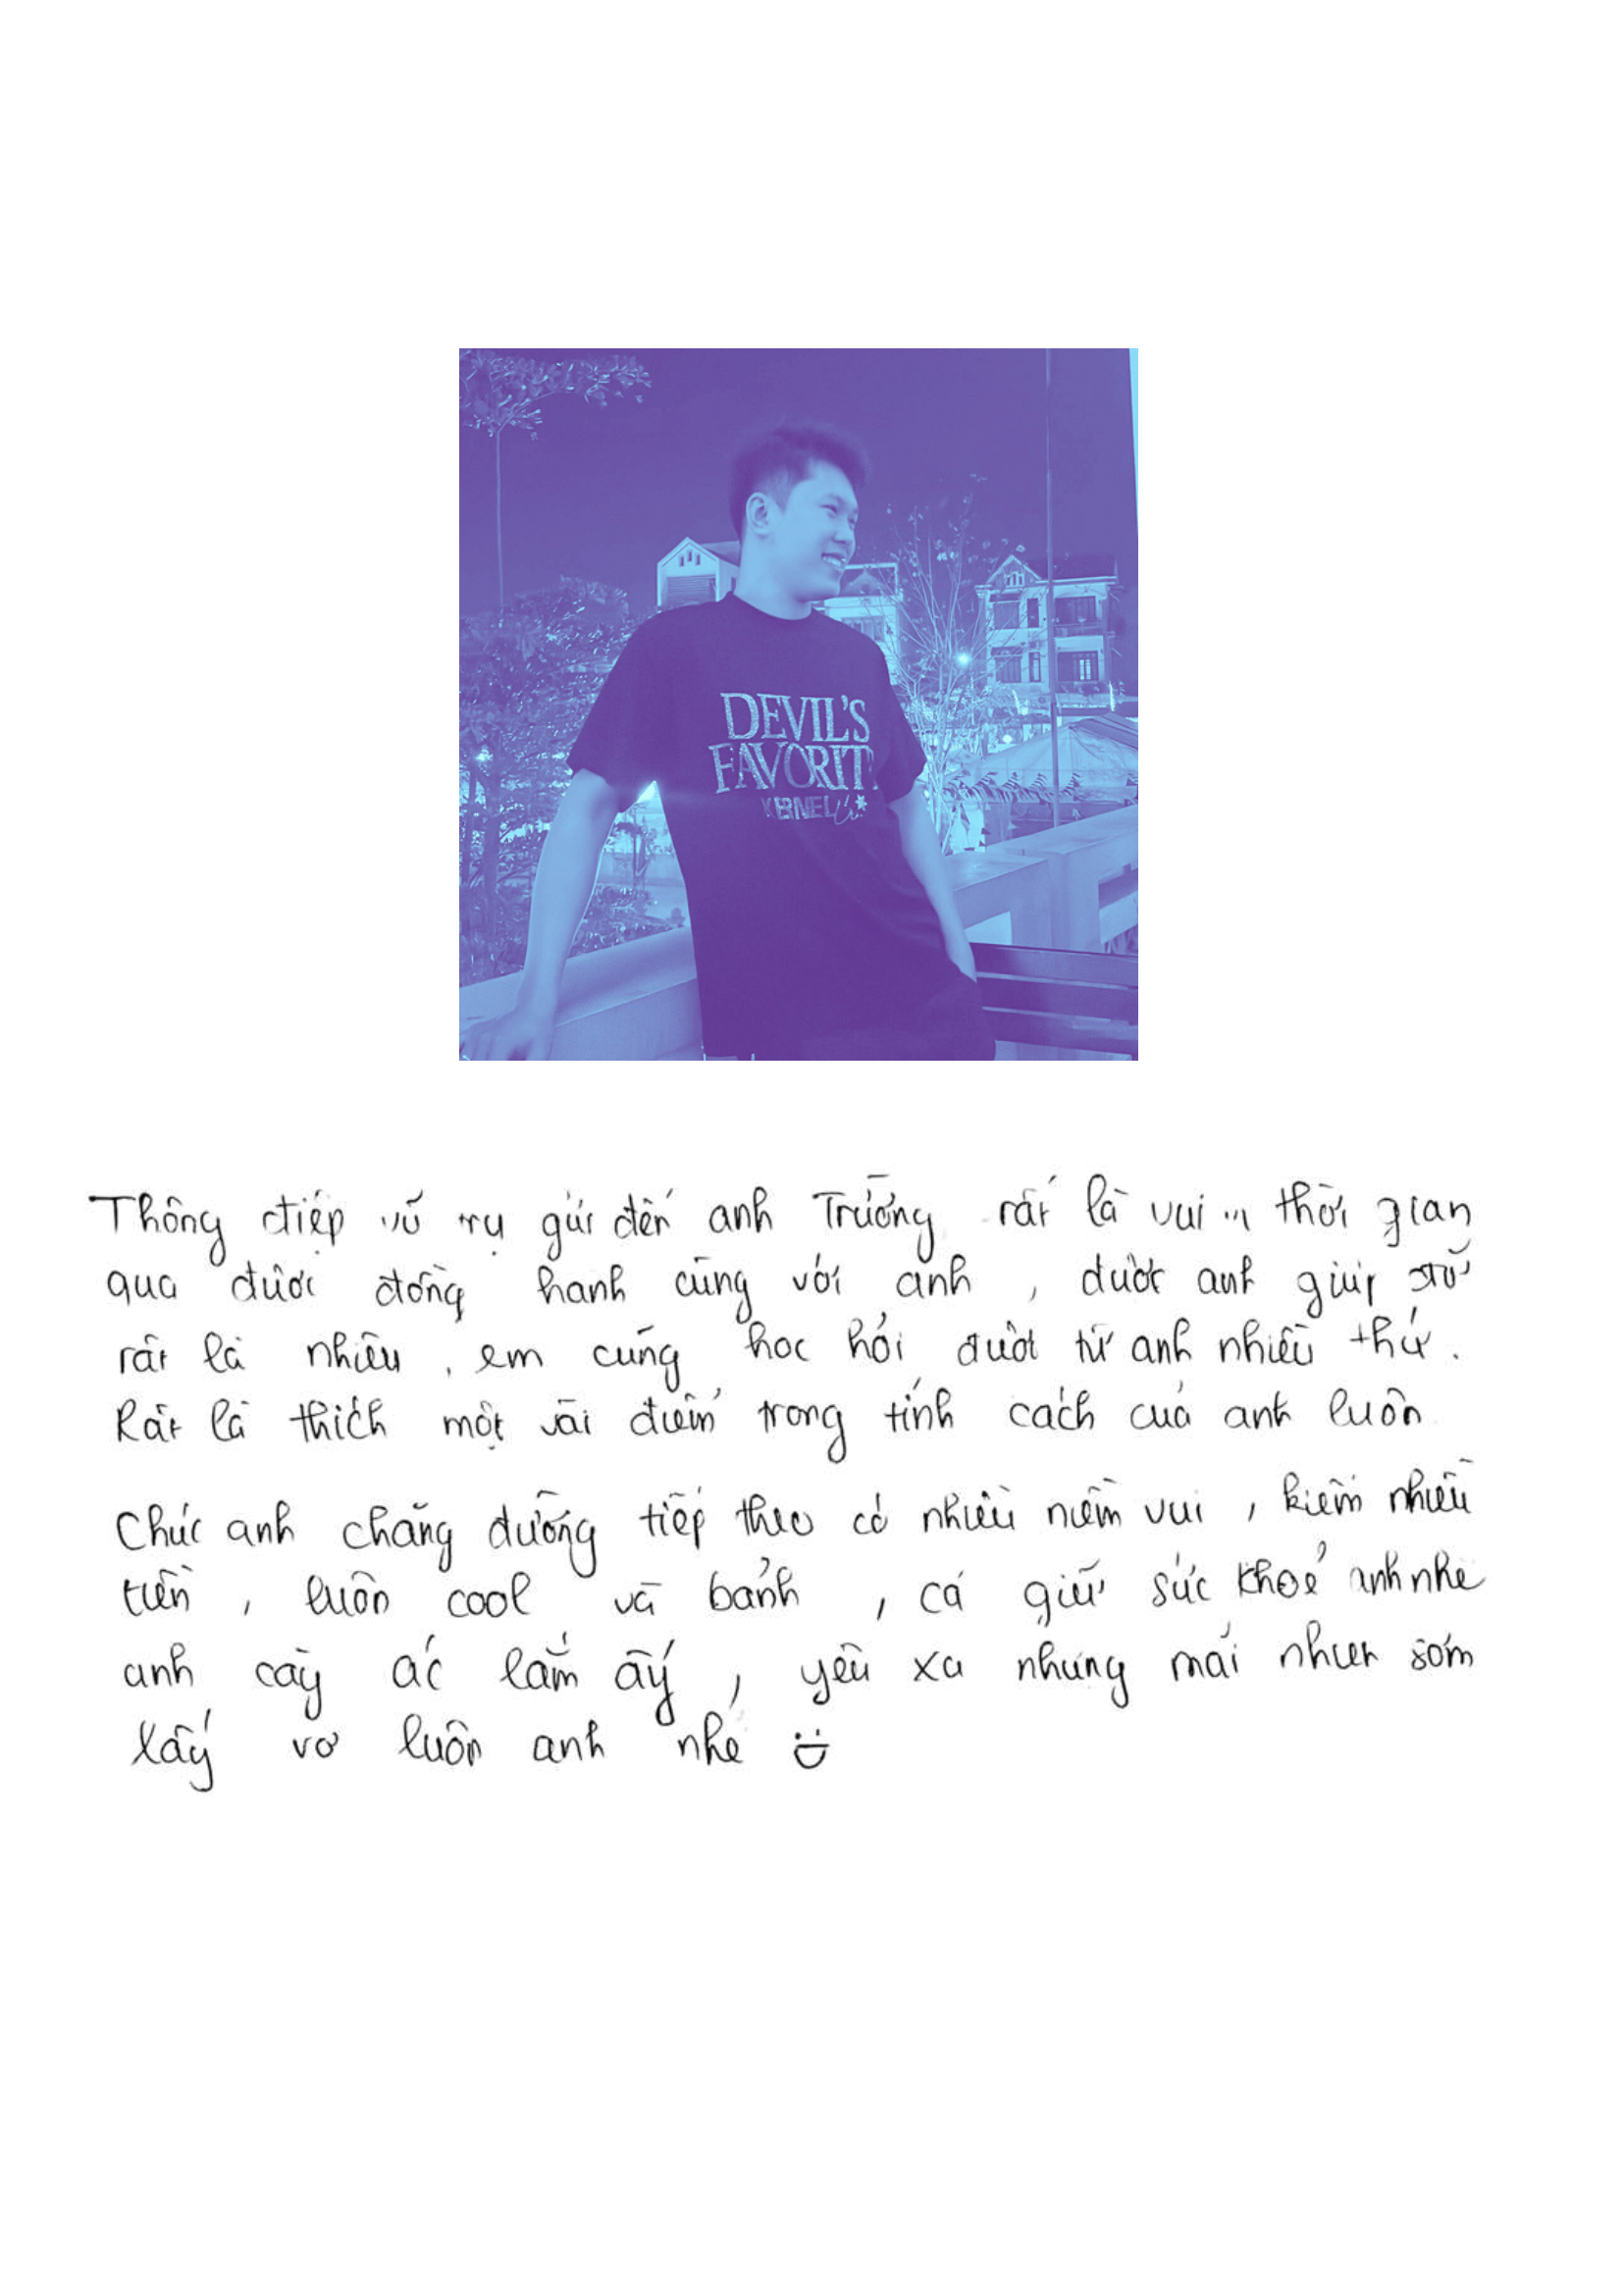 DEVIL'S
FAVORIT
KERNEL
Thông điệp vũ trụ gửi đến anh Trường rất là vui vì thời gian
qua được đồng hành cùng với anh , được anh giúp đỡ
rất là nhiều , em cũng học hỏi được từ anh nhiều thứ .
Rất là thích một vài điểm trong tính cách của anh luôn
Chúc anh chặng đường tiếp theo có nhiều niềm vui , kiếm nhiều
tiền , luôn cool và bảnh , cá giữ sức khoẻ anh nhé
anh cày ác lắm ấy , yêu xa nhưng mãi sớm
lấy vợ luôn anh nhé :D